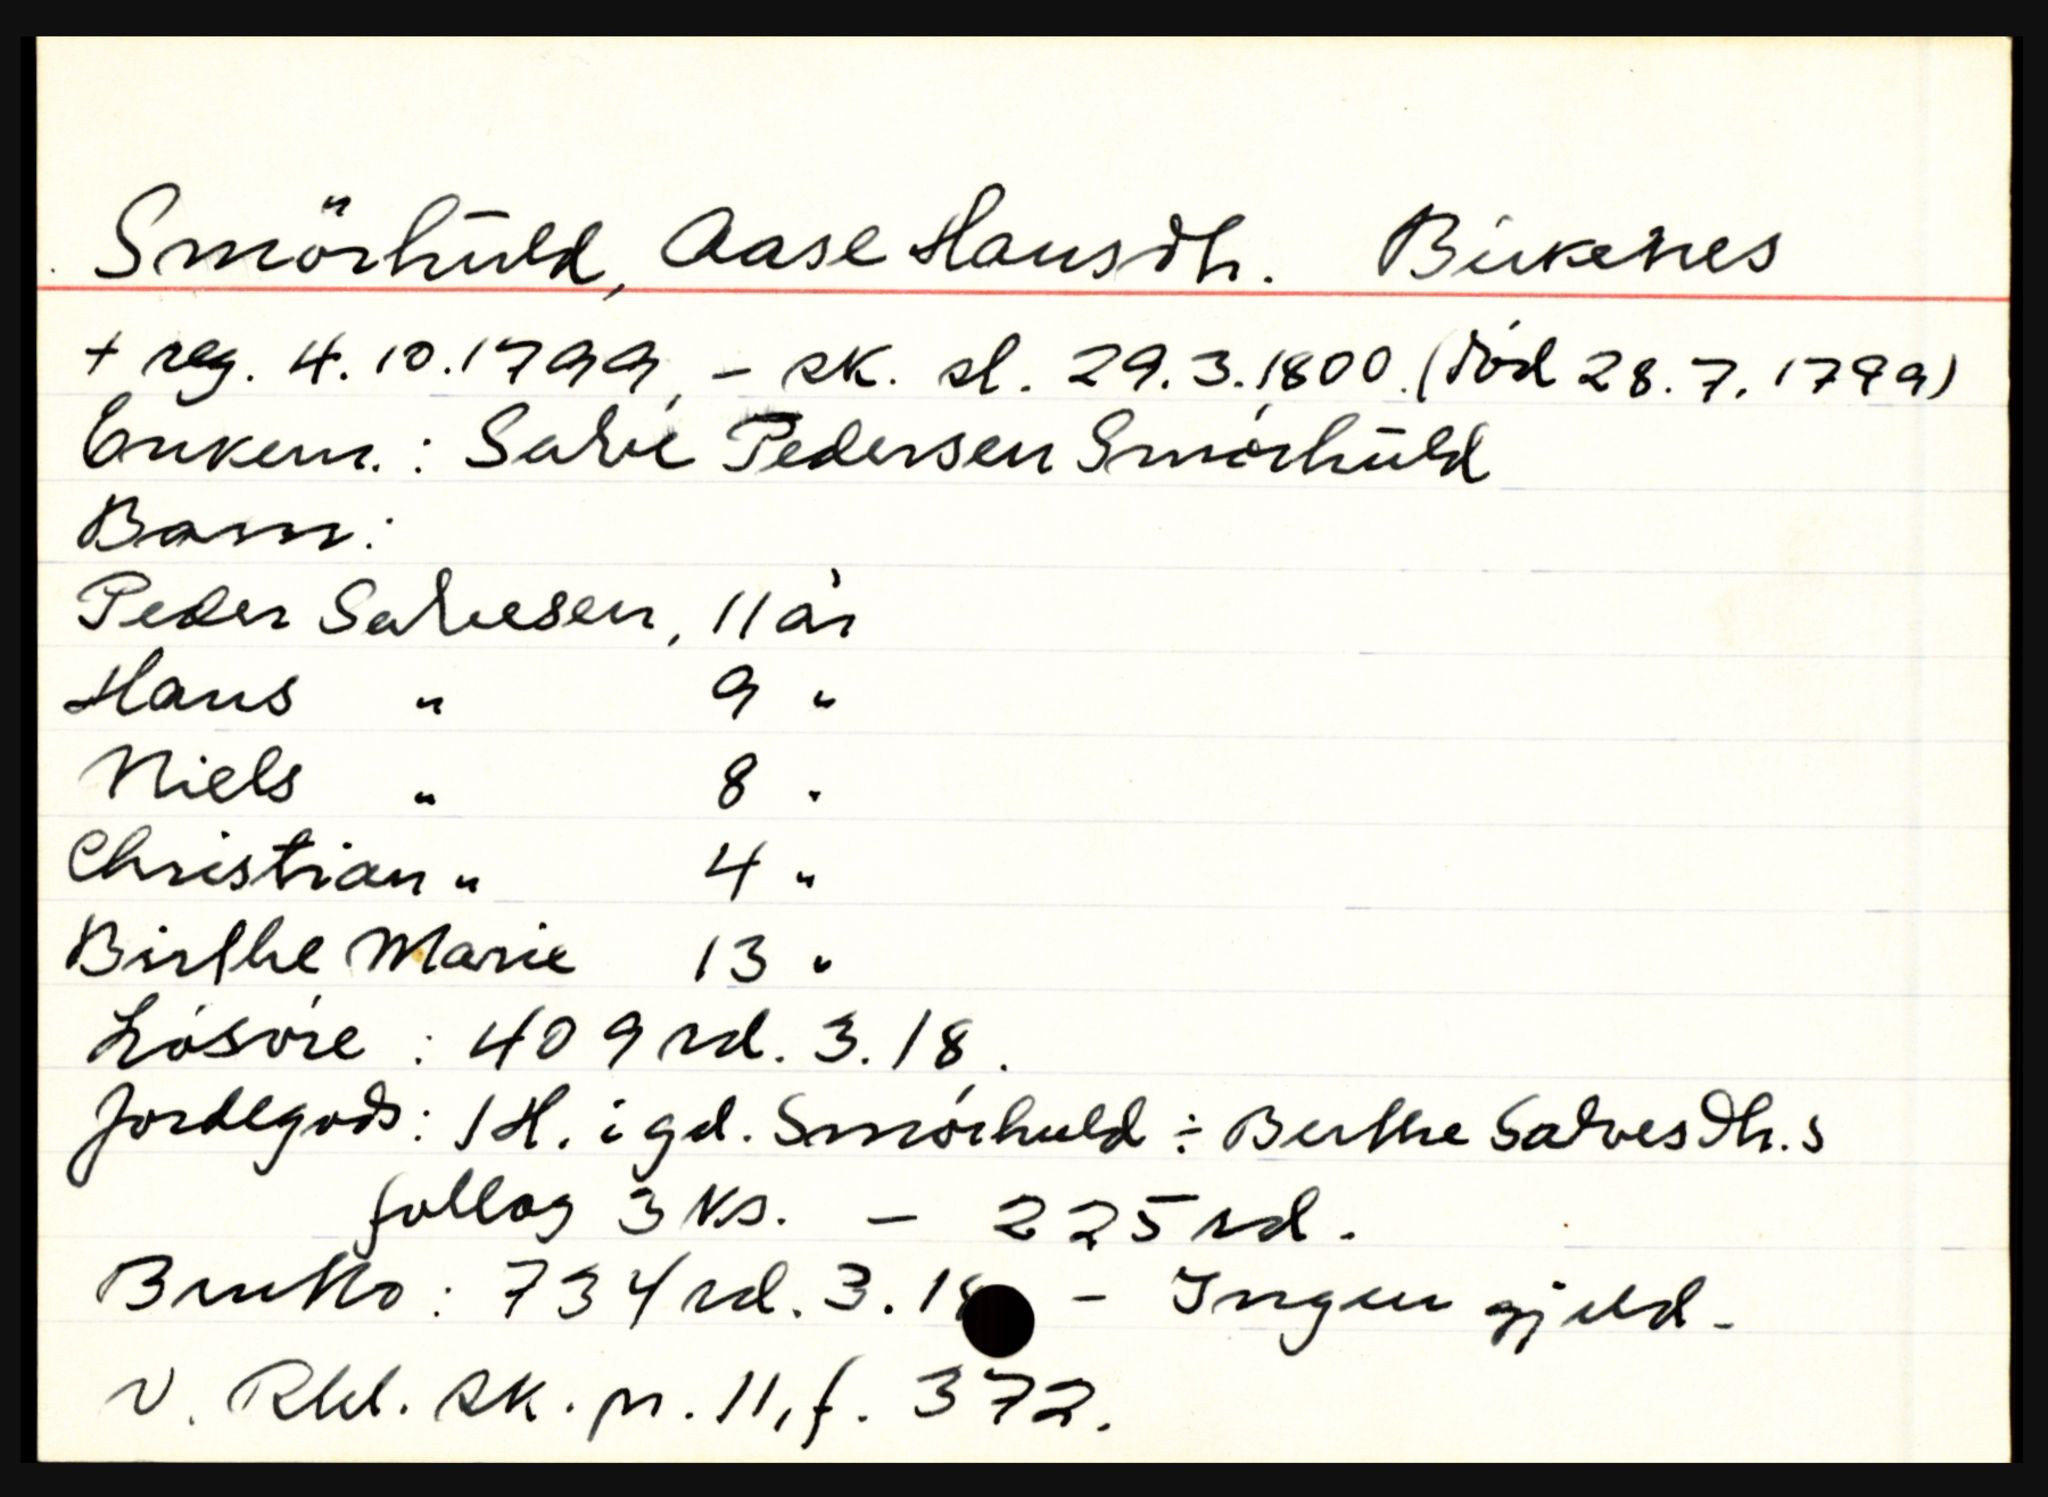 Smörhūld, Aase Hansdtr. Birkenes
+ reg. 4.10.1799, - sk. sl. 29.3.1800. (død 28.7.1799)
Enkem.: Salve Pedersen Smórhūld
Barn:
Peder Salvesen, 11 år
Hans " 9 "
Niels " 8 "
Christian " 4 "
Birthe Marie 13 "
Lósóre : 409 rd. 3. 18.
Jordegods: 1 H. i gd. Smórhuld ÷ Berthe Salvesdtr.s
follog 3 ks. - 225 rd.
Brutto: 734 rd. 3. 18 - Ingen gjeld -
V. Rbl. sk. pr. 11, f. 372.